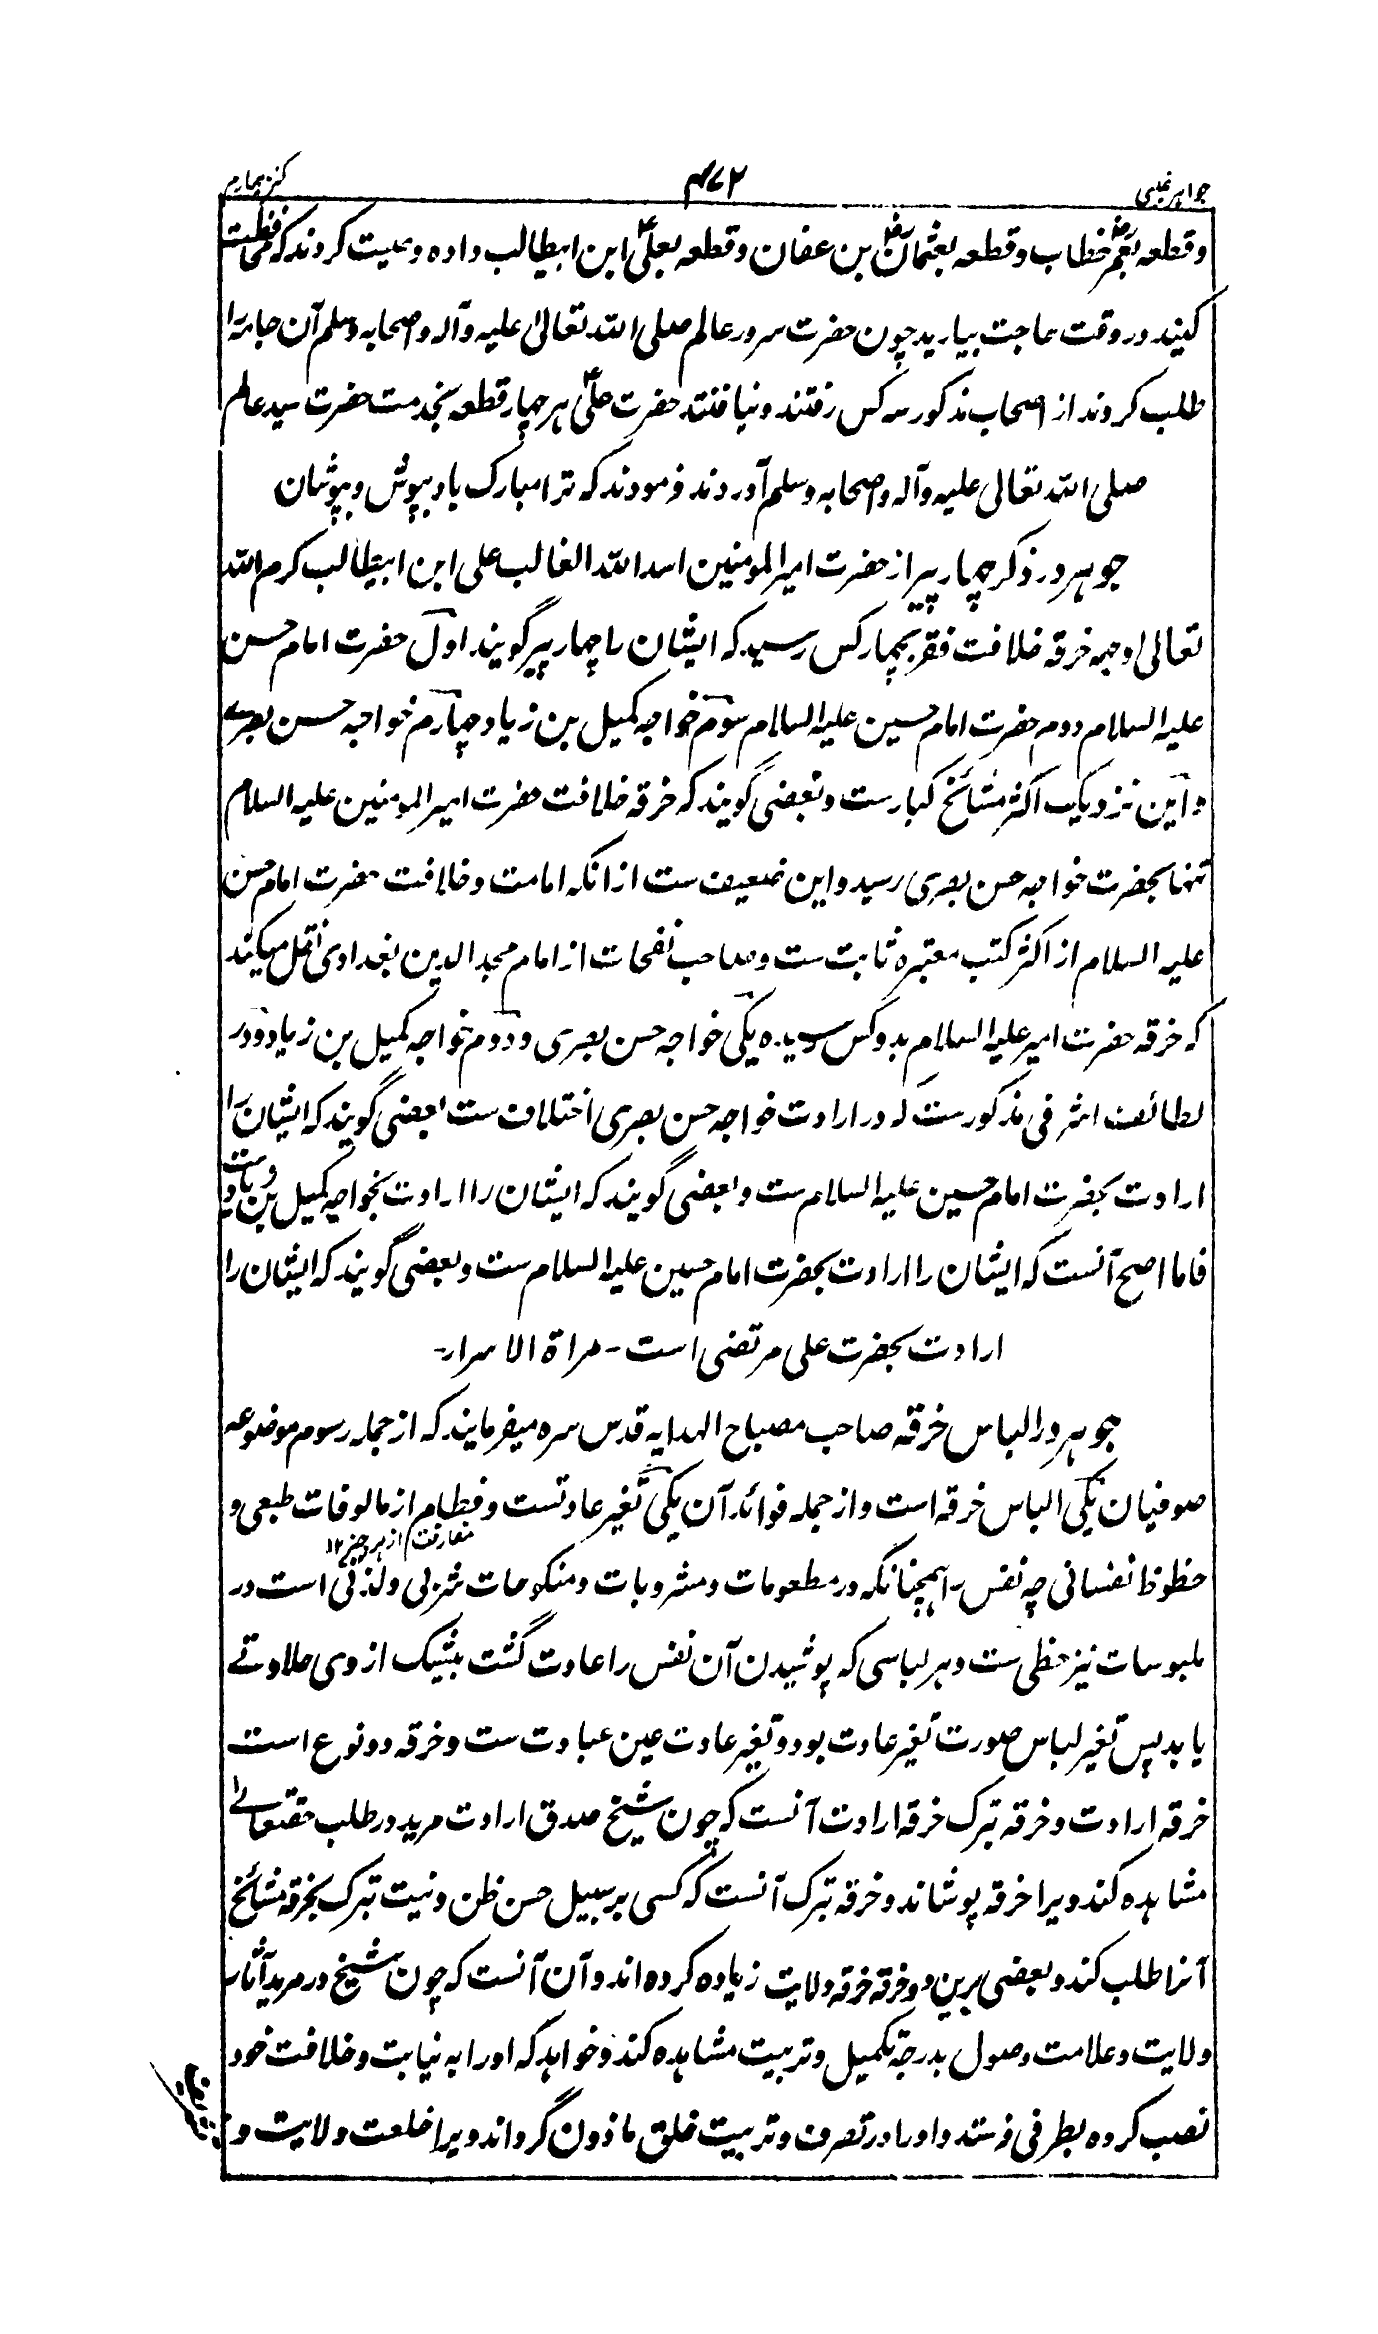 جواهر غیبی ۴۷۲ کنز چهارم
و قطعه بعمرؓ خطاب و قطعه بعثمانؓ بن عفان و قطعه بعلیؑ ابن ابیطالب داده وصیت کردند که محافظت
کنید در وقت حاجت بیارید چون حضرت سرور عالم صلی الله تعالیٰ علیه وآله واصحابه وسلم آن جامه را
طلب کردند از اصحاب مذکور سه کس رفتند و نیافتند حضرت علیؑ هر چهار قطعه بخدمت حضرت سید عالم
صلی الله تعالی علیه وآله واصحابه وسلم آوردند فرمودند که ترا مبارک باد بپوش و بپوشان
جوهر در ذکر چهار پیر از حضرت امیر المومنین اسد الله الغالب علی ابن ابیطالب کرم الله
تعالی وجهه خرقه خلافت فقر بچهار کس رسید که ایشان را چهار پیر گویند اول حضرت امام حسن
علیه السلام دوم حضرت امام حسین علیه السلام سوم خواجه کمیل بن زیاد چهارم خواجه حسن بصرے
و این نزدیک اکثر مشائخ کبارست و بعضی گویند که خرقه خلافت حضرت امیر المومنین علیه السلام
تنها بحضرت خواجه حسن بصری رسید و این ضعیف ست از انکه امامت و خلافت حضرت امام حسن
علیه السلام از اکثر کتب معتبره ثابت ست و صاحب نفحات از امام مجد الدین بغدادی نقل میکند
که خرقه حضرت امیر علیه السلام بدو کس رسیده یکی خواجه حسن بصری و دوم خواجه کمیل بن زیاد و در
لطائف اشرفی مذکورست که در ارادت خواجه حسن بصری اختلاف ست بعضی گویند که ایشان را
ارادت بحضرت امام حسین علیه السلام ست و بعضی گویند که ایشان را ارادت بخواجه کمیل بن زیاد ست و
فاما اصح آنست که ایشان را ارادت بحضرت امام حسین علیه السلام ست و بعضی گویند که ایشان را
ارادت بحضرت علی مرتضی است - مراة الاسرار -
جوهر در الباس خرقه صاحب مصباح الهدایه قدس سره میفرمایند که از جمله رسوم موضوعه
صوفیان یکی الباس خرقه است و از جمله فوائد آن یکی تغیر عادتست و فطام از مالوفات طبعی و
مفارقت از هر چیز ۱۲
حظوظ نفسانی چه نفس را همچنانکه در مطعومات و مشروبات و منکوحات شربی و لذتی است در
ملبوسات نیز حظی ست و هر لباسی که پوشیدن آن نفس را عادت گشت بیشک از وی حلاوتے
یابد پس تغیر لباس صورت تغیر عادت بود و تغیر عادت عین عبادت ست و خرقه دو نوع است
خرقه ارادت و خرقه تبرک خرقه ارادت آنست که چون شیخ صدق ارادت مرید در طلب حقتعالےٰ
مشاهده کند ویرا خرقه پوشاند و خرقه تبرک آنست که کسی بر سبیل حسن ظن و نیت تبرک بخرقه مشائخ
آنرا طلب کند و بعضی برین دو خرقه خرقه ولایت زیاده کرده اند و آن آنست که چون شیخ در مرید آثار
ولایت و علامت وصول بدرجه تکمیل و تربیت مشاهده کند و خواهد که اورا به نیابت و خلافت خود
نصب کرده بطرفی فرستد و اورا در تصرف و تربیت خلق ماذون گرداند ویرا خلعت ولایت و